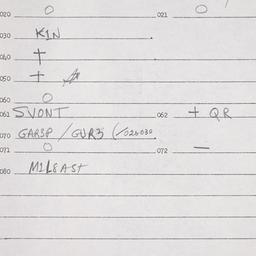 020 O 021 O
030 KIN
040 +
050 +
060 O
061 SVONT 062 + QR
070 GARSP / GUR3 (
071 O 072 —
080 MILSAST